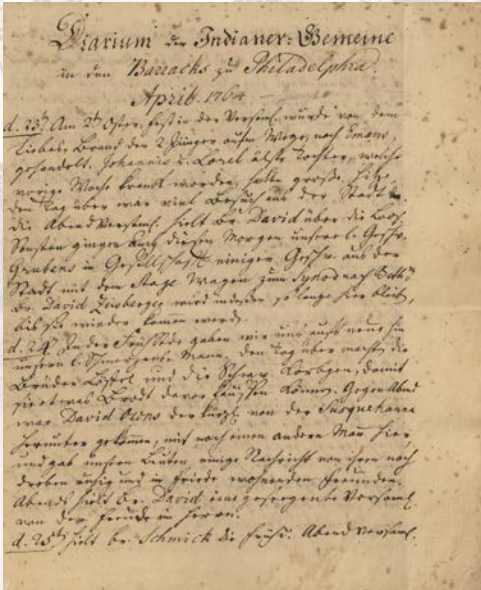 Diarium der Indianer-Gemeine
in den Barracks zu Philadelphia.
April. 1764
d. 23t Am 2t Oster-Fest in der Versaml. wurde von dem
Liebes-Brand der 2 Jünger aufm Wege nach Emaus,
gehandelt. Johannis u. älste Tochter, welche
vorige Woche krank worden, hatte große Hitze.
den Tag über war viel Besuch aus der Stadt da.
die Abend Versaml. hielt Br. David über die Loos.
Sonsten gingen auch diesen Morgen unsere l. Geschw.
Grubens in Gesellschaft einigen Geschw. aus der
Stadt mit dem Stage Wagen zum Synod nach
Br. David Zeisberger wird indeßen so lange hier bleib,
bis sie wieder kommen werd.
d. 24t In der Frühstde gaben wir uns aufs neue hin
unserm l. Schmerzens Mann. den Tag über machten die
Brüder Löffel und die Schw. Körbgen, damit
sie etwas Brodt davor kauffen können. Gegen Abend
war David Owens der kürzl. von der Susquehanna
herunter gekomen, mit noch einem andern Mann hier,
und gab unsern Leuten einige Nachricht von ihren noch
droben ruhig und in Friede wohnenden Freunden.
Abends hielt Br. David eine Versaml.
von der Freude im Herrn.
d. 25t hielt br. Schmick die früh- u. Abend Versaml.